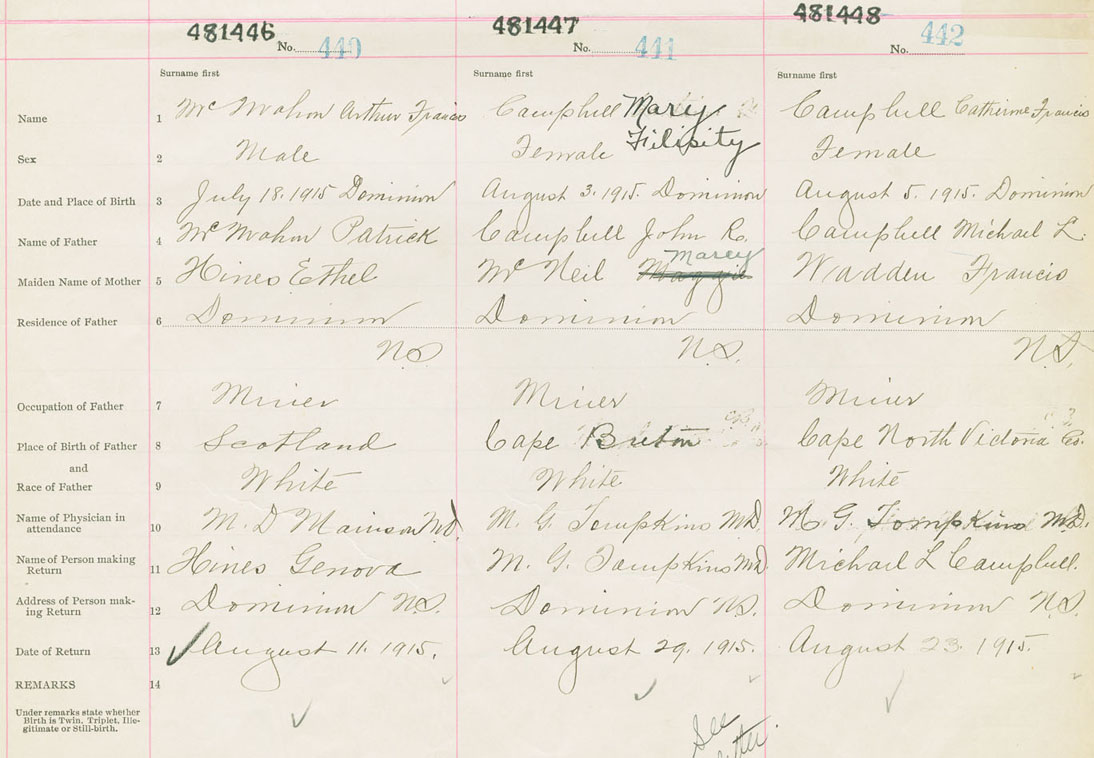 481446 481447 481448
No. 440 No. 441 No. 442
Surname first Surname first Surname first
Name 1 McMahon Arthur Francis Campbell Mary Campbell Catherine Francis
Filisity
Sex 2 Male Female Female
Date and Place of Birth 3 July 18. 1915 Dominion August 3. 1915. Dominion August 5. 1915. Dominion
Name of Father 4 McMahon Patrick Campbell John R. Campbell Michael L.
Marcy
Maiden Name of Mother 5 Hines Ethel McNeil Maggie Wadden Francis
Residence of Father 6 Dominion Dominion Dominion
N.S. N.S. N.S.
Occupation of Father 7 Miner Miner Miner
Place of Birth of Father 8 Scotland Cape Breton Cape North Victoria Co.
and
Race of Father 9 White White White
Name of Physician in
attendance 10 M. D M.D. M. G. Tompkins M.D. M. G. Tompkins M.D.
Name of Person making
Return 11 Hines Genova M. G. Tompkins M.D. Michael L Campbell.
Address of Person mak-
ing Return 12 Dominion N.S. Dominion N.S. Dominion N.S.
Date of Return 13 August 11. 1915. August 29. 1915. August 23. 1915.
REMARKS 14
Under remarks state whether
Birth is Twin, Triplet, Ille-
gitimate or Still-birth.
See